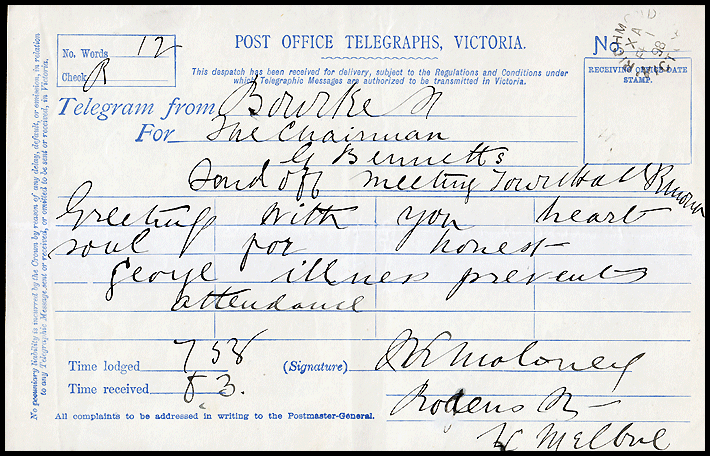 No. Words 12
Check R
POST OFFICE TELEGRAPHS, VICTORIA.
No.
RICHMOND
98
This despatch has been received for delivery, subject to the Regulations and Conditions under
which Telegraphic Messages are authorized to be transmitted in Victoria.
RECEIVING OFFICE DATE
STAMP.
Telegram from Bourke St
For The Chairman
G Bennetts
Send off meeting Town Hall Rmond
Greeting with you heart
soul for honest
George illness prevents
attendance
Time lodged 7 58
(Signature) Maloney
Time received 8 3.
St
W Melbne
All complaints to be addressed in writing to the Postmaster-General.
No pecuniary liability is incurred by the Crown by reason of any delay, default, or omission, in relation
to any Telegraphic Message sent or received, or omitted to be sent or received, in Victoria.